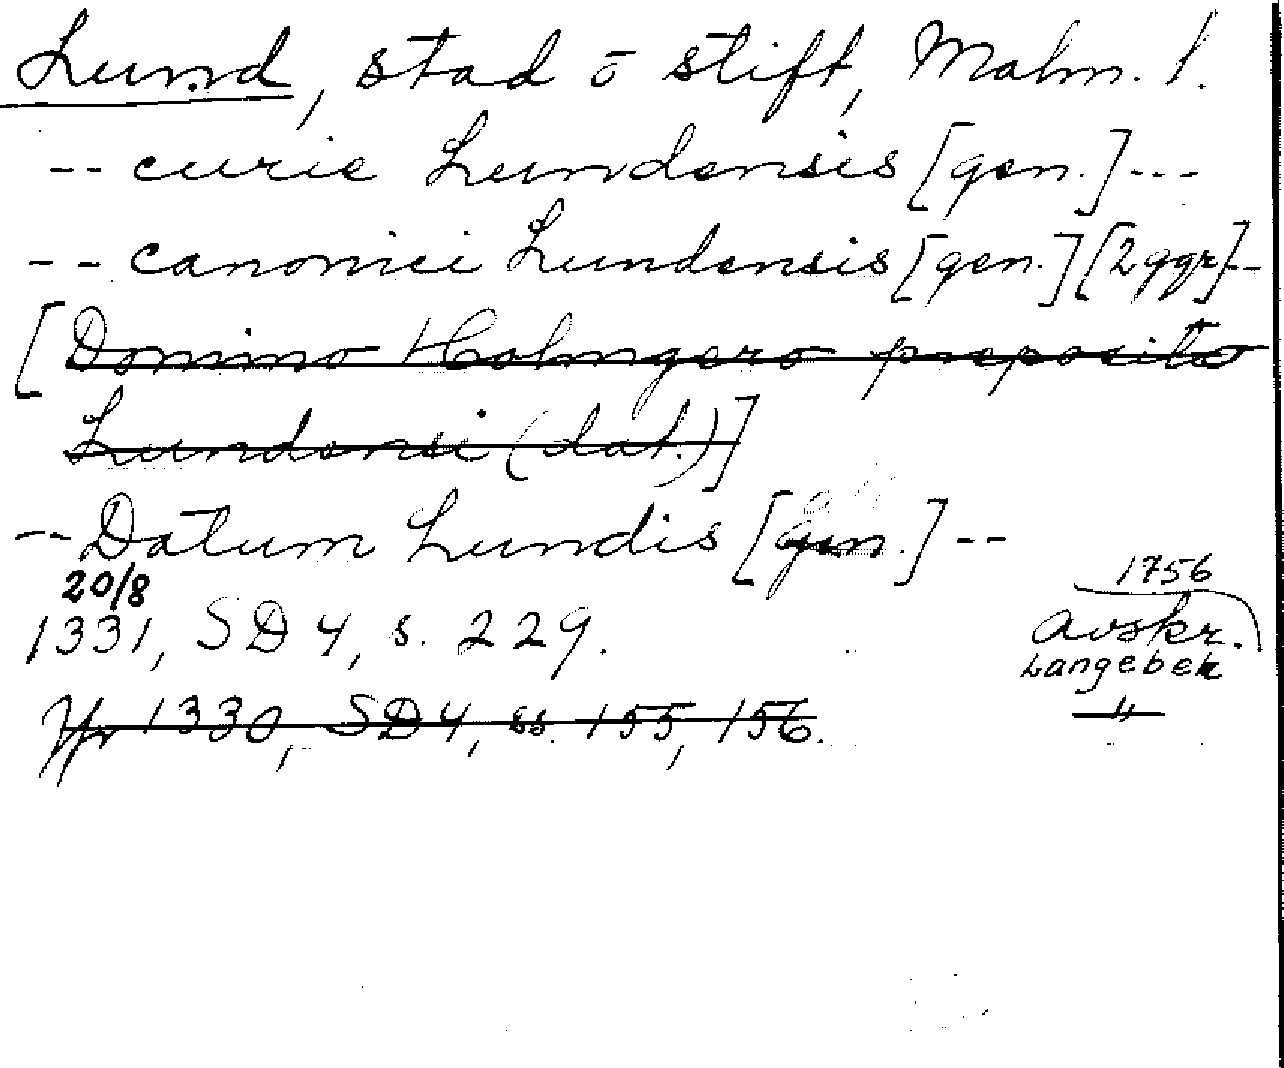 Lund, stad o stift, Malm. l.
-- curie Lundensis [gen.] ---
-- canonici Lundensis [gen.] [2 ggr] --
[Domino Holmgero preposito
Lundensi (dat.)]
-- Datum Lundis [gen.] --
20/8
1331, SD 4, s. 229.
1756
avskr.
Langebek
Jfr 1330, SD 4, ss. 155, 156.
"